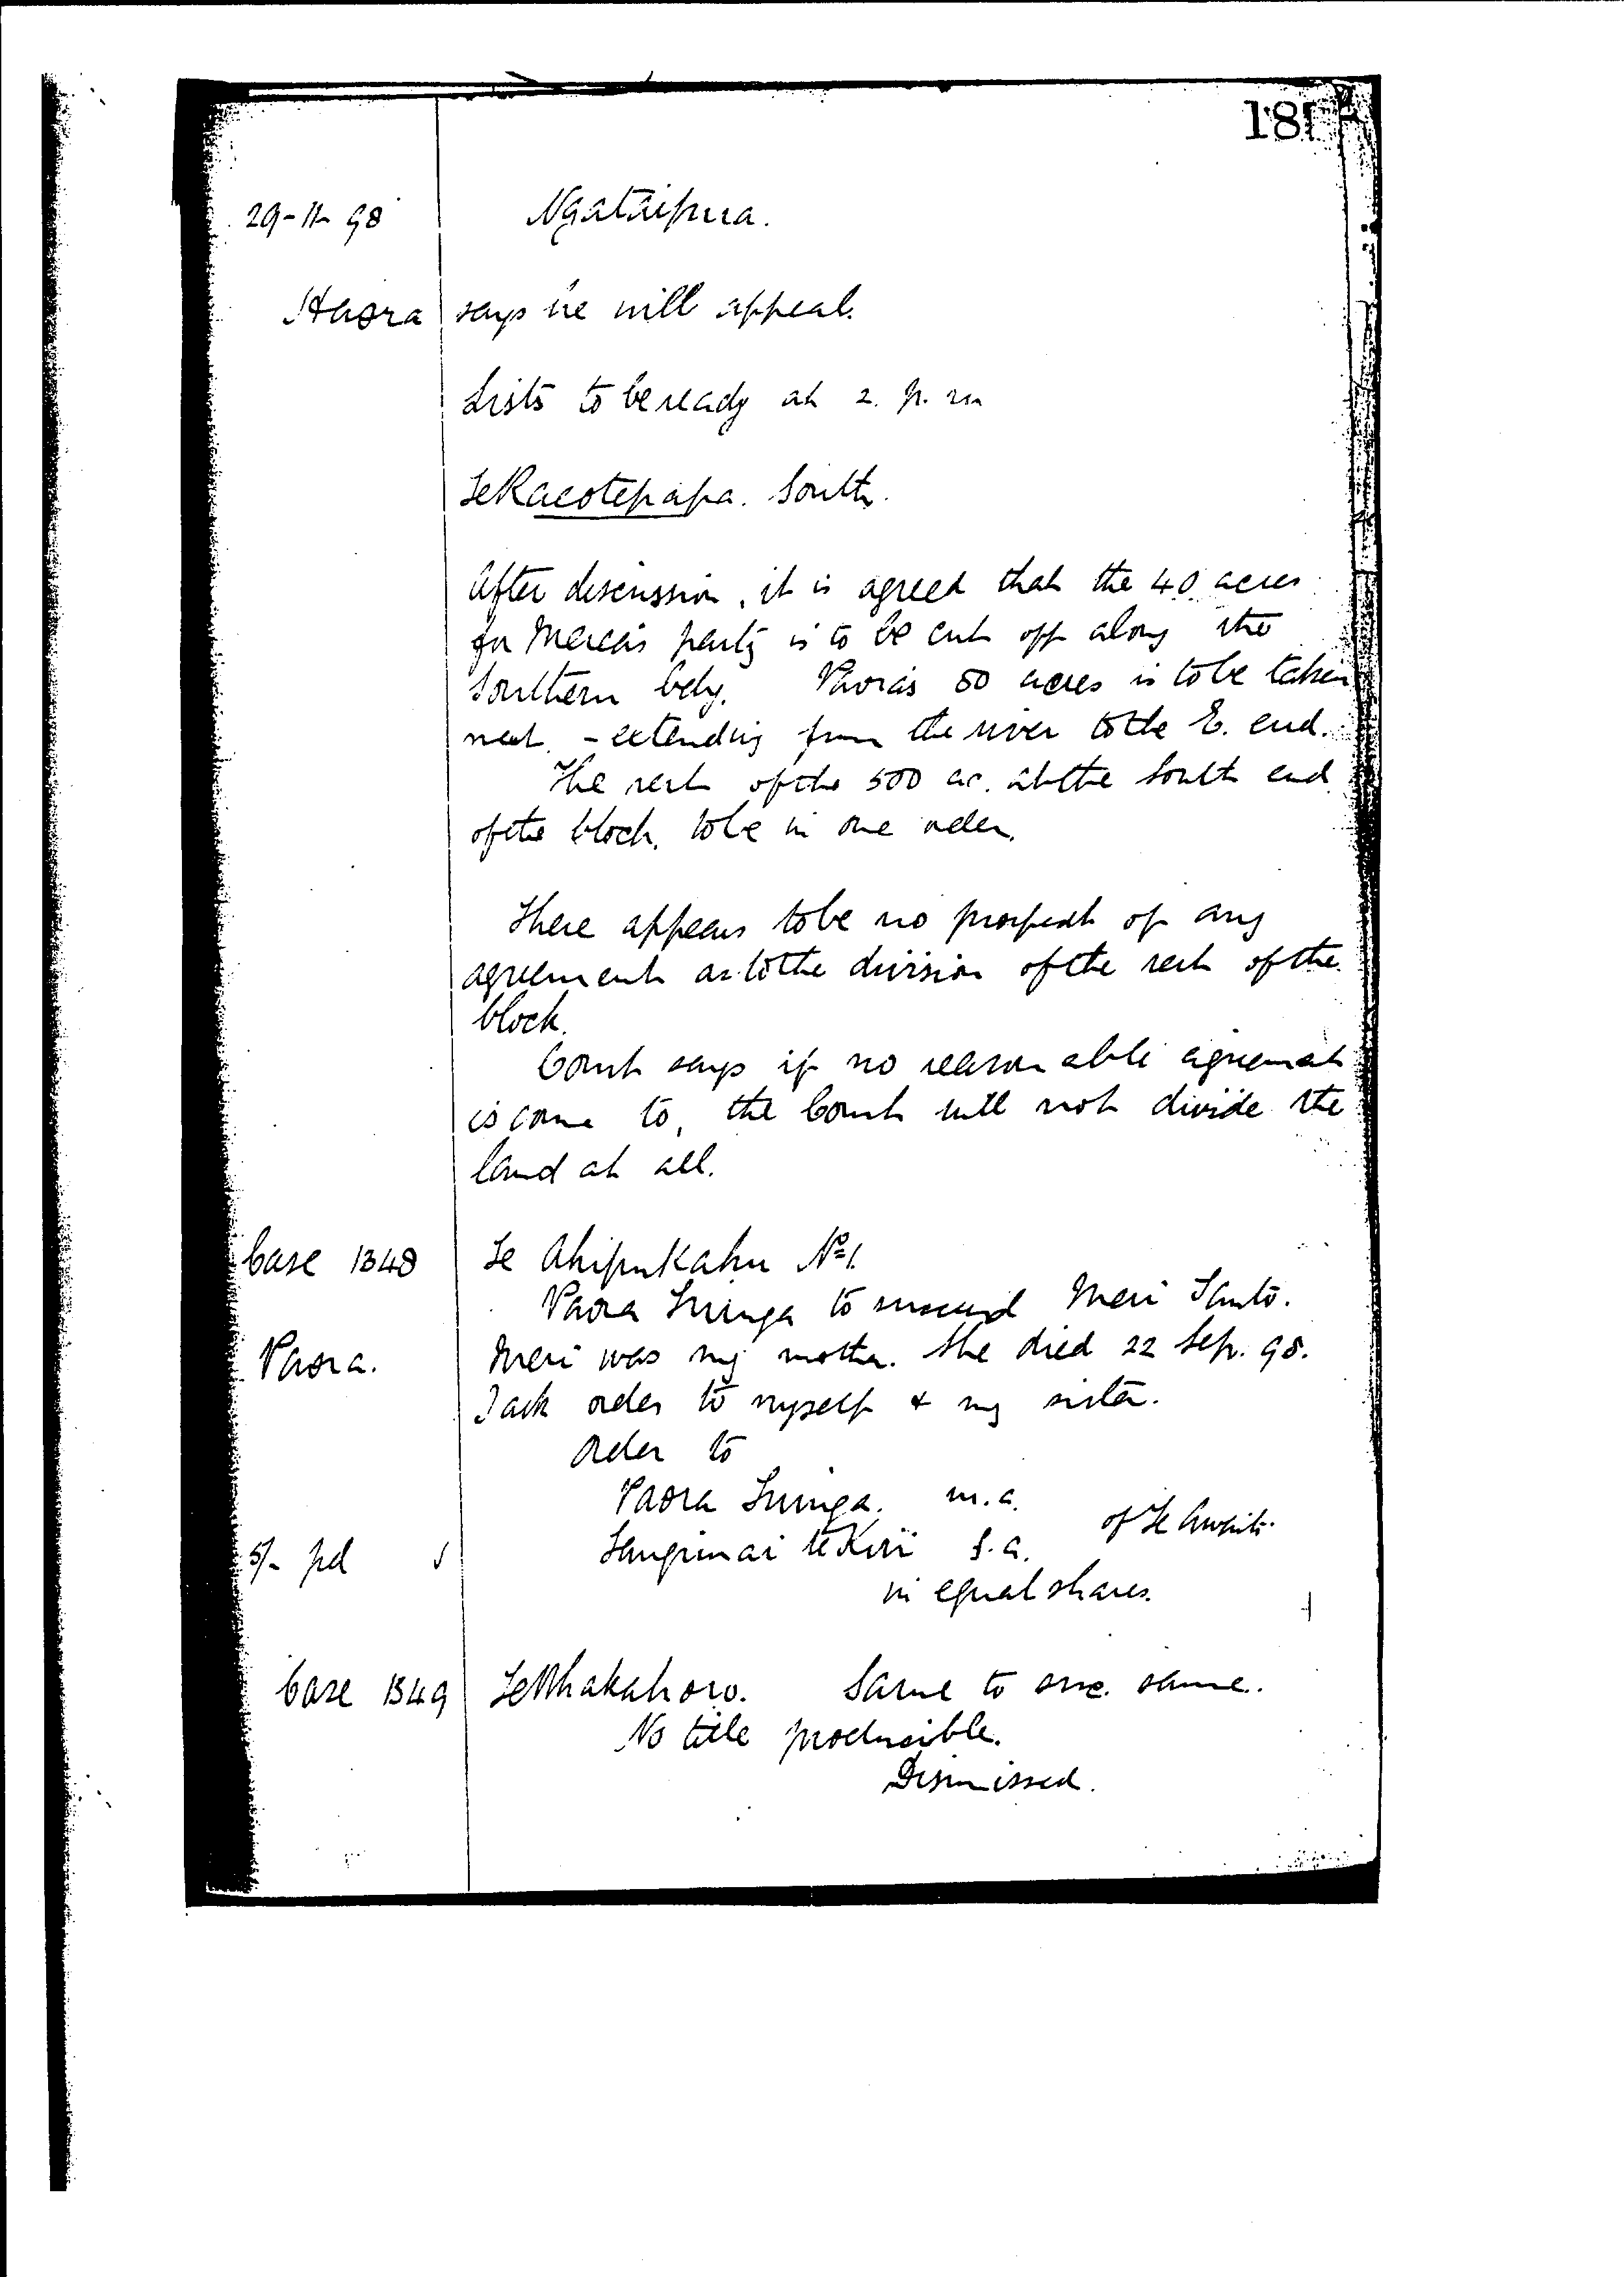 181
29-11-98 Ngataipua.
Haora says he will appeal.
Lists to be ready at 2. p. m
Te Raeotepapa. South.
After discussion, it is agreed that the 40 acres
for Mereas party is to be cut off along the
Southern bdy. Paora's 50 acres is to be taken
next. - extending from the river to the E. end.
The rest of the 500 ac. at the South end
of the block. to be in one order.
There appears to be no prospect of any
agreement as to the division of the rest of the
block.
Court says if no reasonable agreement
is come to, the Court will not divide the
land at all.
Case 1348 Te Ahipukahu No 1.
Paora Tuinga to succeed Meri Tanto.
Paora. Meri was my mother. She died 22 Sep. 98.
I ask order to myself & my sister.
Order to
Paora Tuinga. m.a.
of Te Awaiti.
5/- pd Tangimai te Kiri f.a.
in equal shares.
Case 1349 Te Whakahoro. Same to suc. same.
No title producible.
Dismissed.